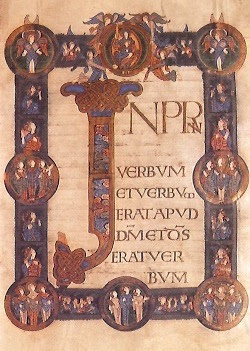 INPRIN
VERBUM
ETVERBUM
ERATAPUD
DMETDS
ERATVER
BUM